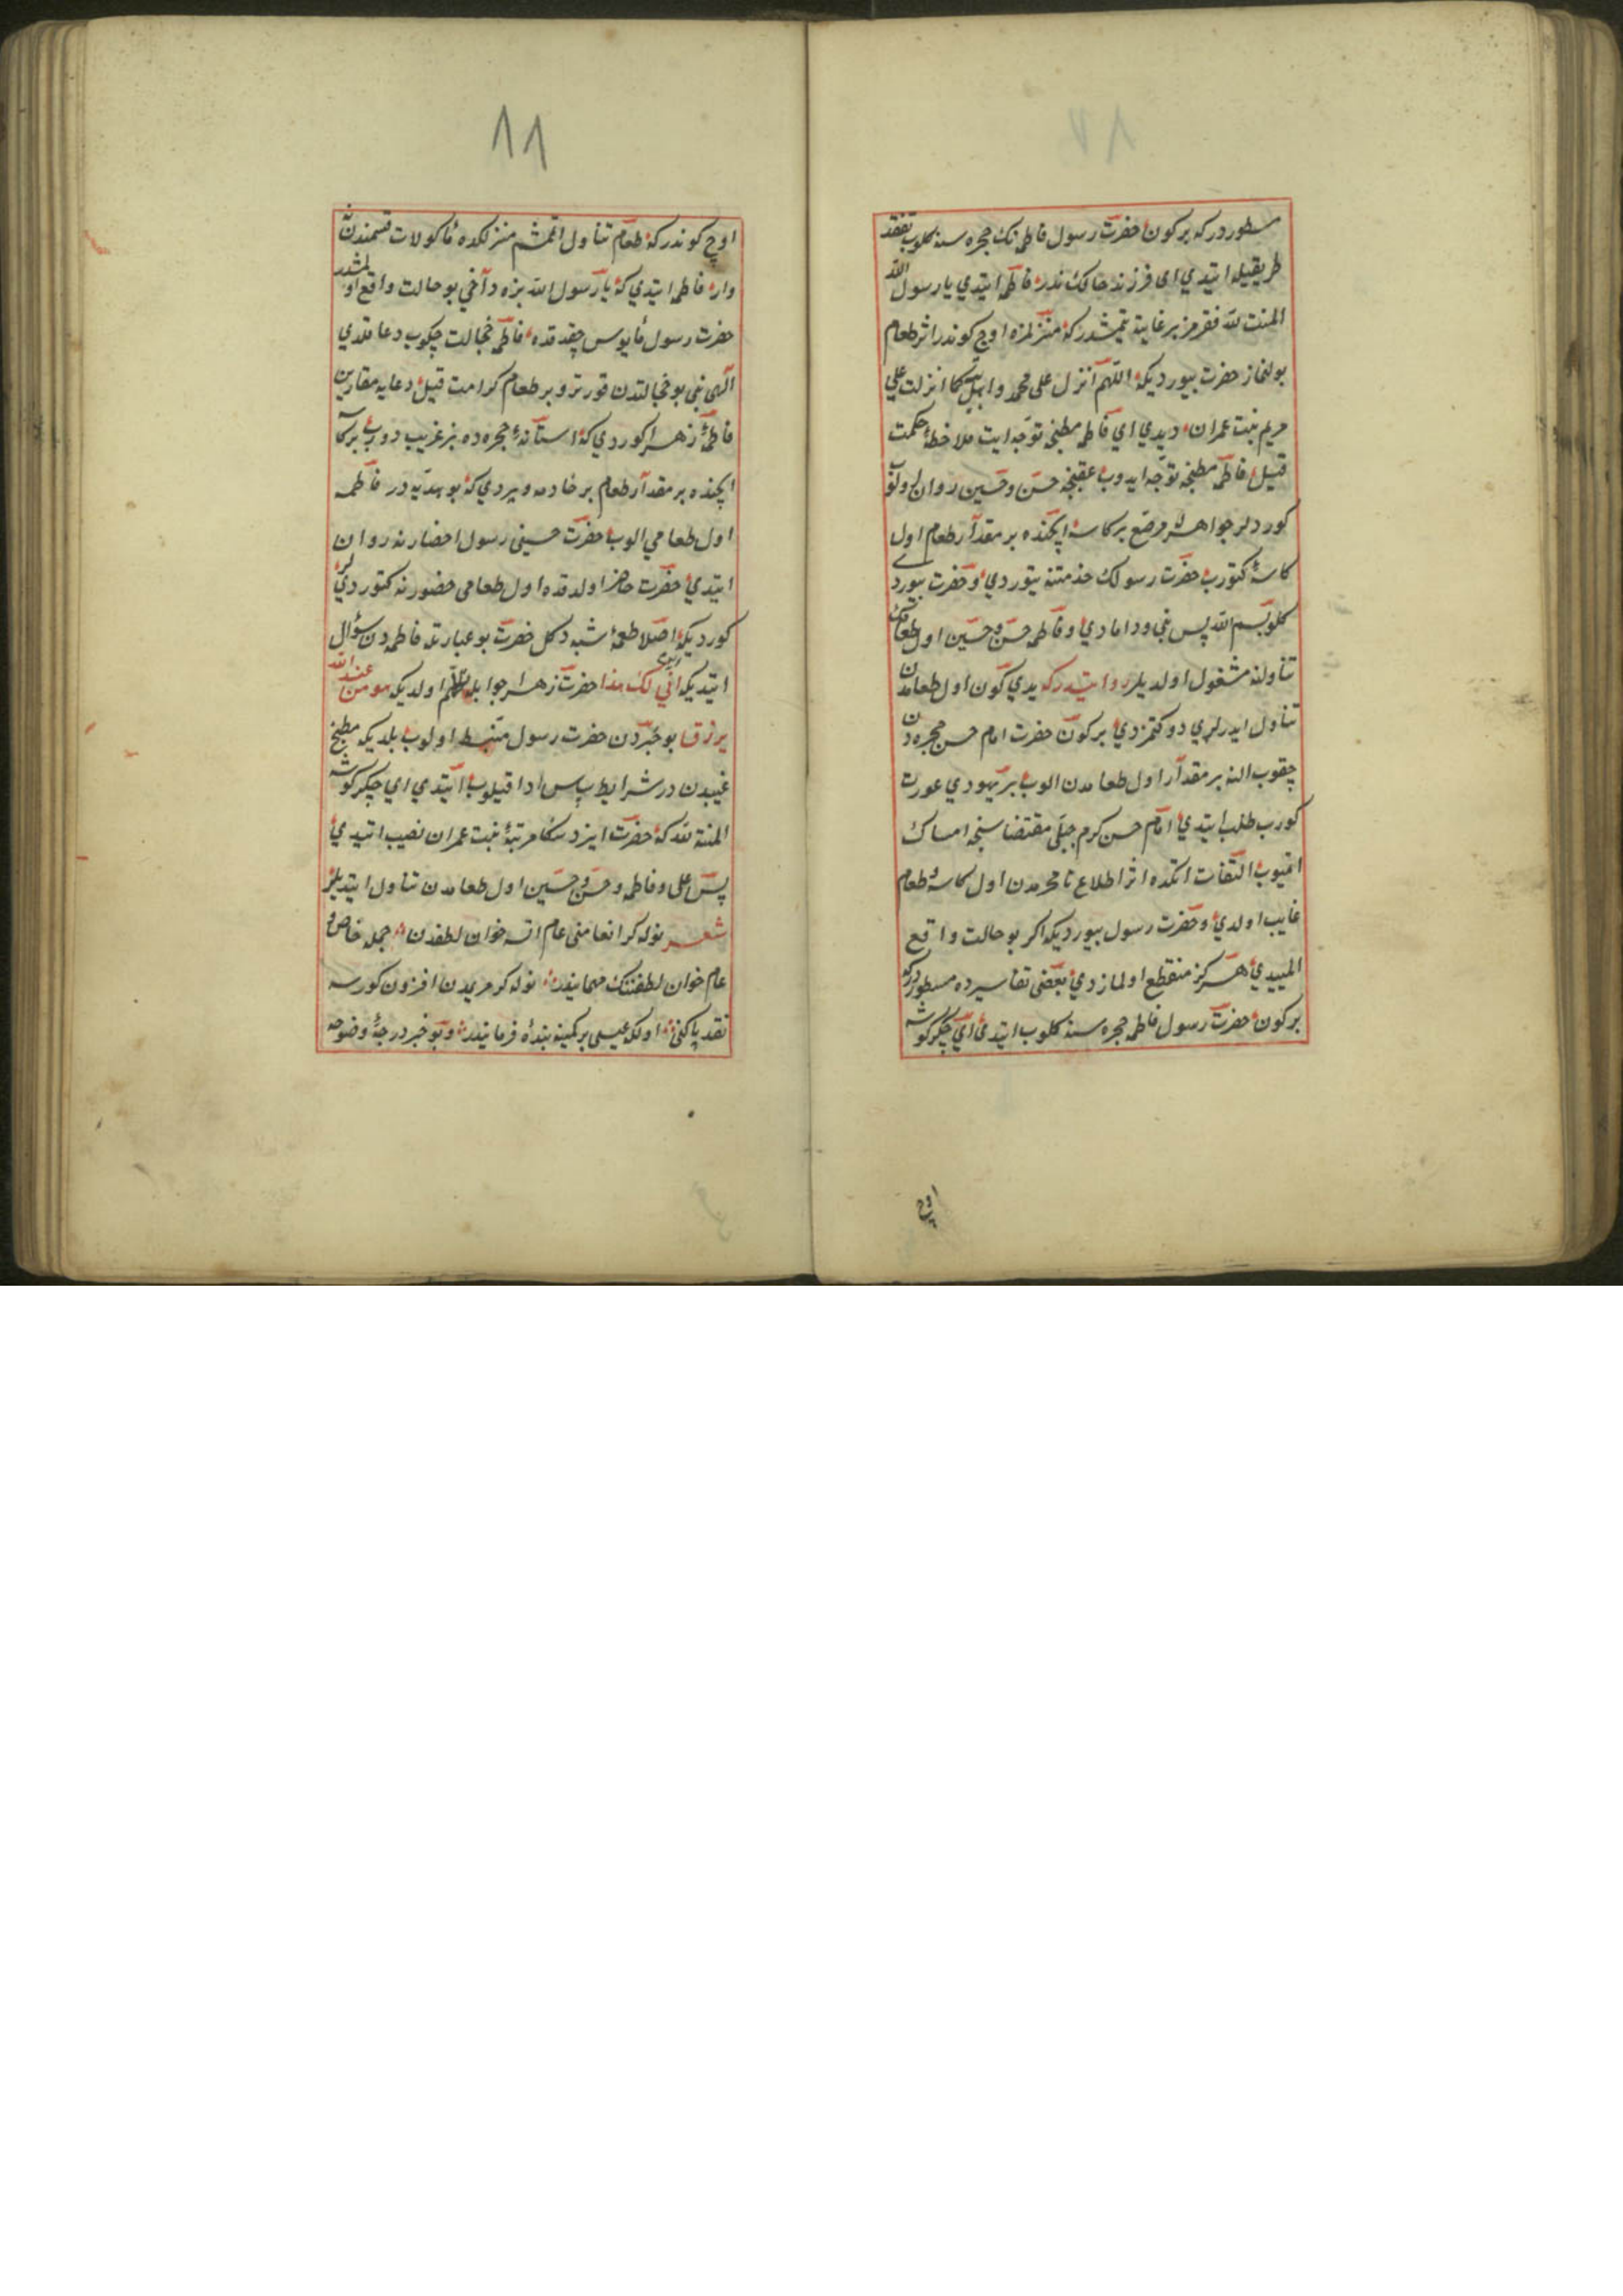 مسطوردر که بر کون حضرت رسول فاطمه نک حجره سنه کلوب تفقد
طریقیله ایتدی ای فرزند حالک ندر فاطمه ایتدی یا رسول الله
المنت لله فقرمز بر غایته یتمشدر که منزلمزه اوچ کوندر اثر طعام
بولنماز حضرت بیوردیکه اللهم انزل علی محمد واهل بیته کما انزلت علی
مریم بنت عمران دیدی ای فاطمه مطبخه توجه ایت ملاحظۀ حکمت
قیل فاطمه مطبخه توجه ایدوب عقبنجه حسن و حسین روان اولوب
کوردلر جواهرله مرصع بر کاسه ایچنده بر مقدار طعام اول
کاسۀ کتورب حضرت رسولک خدمتنه یتوردی و حضرت بیوردی
کلوا بسم الله پس نبی و دامادی و فاطمه حسن و حسین اول طعامک
تناولنه مشغول اولدیلر روایتدرکه یدی کون اول طعامدن
تناول ایدرلردی دوکنمزدی بر کون حضرت امام حسن حجره دن
چقوب النه بر مقدار اول طعامدن الوب بر یهودی عورت
کورب طلب ایتدی امام حسن کرم جبلی مقتضاسنجه امساک
اتمیوب التفات اتکده اثر اطلاع نامحرمدن اول کاسه و طعام
غایب اولدی و حضرت رسول بیوردیکه اکر بو حالت واقع
المییدی هرکز منقطع اولمازدی بعضی تفاسیرده مسطوردرکه
بر کون حضرت رسول فاطمه حجره سنه کلوب ایتدی ای جکرکوشه
اوچ
۱۱
اوچ کوندر که طعام تناول اتمشم منزلکده مأکولات قسمندن
وار فاطمه ایتدی که یا رسول الله بزه دآخی بو حالت واقع اولمشدر
حضرت رسول مأیوس چقدقده فاطمه خجالت چکوب دعا قلدی
الهی بنی بو خجالتدن قورتر و بر طعام کرامت قیل دعایه مقارن
فاطمۀ زهرا کوردی که استانۀ حجره ده بر غریب دورب بر کاسه
ایچنده بر مقدار طعام بر خادمه ویردی که بو هدیه در فاطمه
اول طعامی الوب حضرت حسینی رسول احضارنه روان
ایتدی حضرت حاضر اولدقده اول طعامی حضورنه کتوردیلر
کوردیکه اصلا طعمۀ شبه دکل حضرت بو عبارتله فاطمه دن سؤال
ایتدیکه انی لک هذا حضرت زهرا جوابله اولدیکه هو من عند الله
یرزق بو خبردن حضرت رسول منبسط اولوب بلدیکه مطبخ
غیبدن در شرایط سپاس ادا قیلوب ایتدی ای جکرکوشه
المنة لله که حضرت ایزد سکا مرتبۀ بنت عمران نصیب ایتدی
پس علی و فاطمه و حسن و حسین اول طعامدن تناول ایتدیلر
شعر نوله کر انعامنی عام اتسه خوان لطفدن جمله خاص و
عام خوان لطفنک مهمانیدر نوله کر مریمدن افزون کورسه
نقد پاکنی اولکه عیسی بر کمینه بندۀ فرمانیدر و بو خبر درجۀ وضوحه